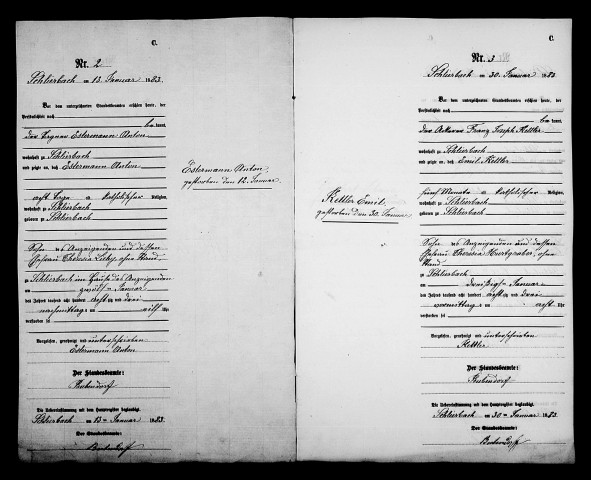 C.
Nr. 2
Schlierbach am 13. Januar 1883.
Vor dem unterzeichneten Standesbeamten erschien heute, der
Persönlichkeit nach
be kannt,
Estermann Anton
wohnhaft zu Schlierbach
und zeigte an, daß Estermann Anton
acht Tage katholischer Religion,
wohnhaft zu Schlierbach
geboren zu Schlierbach
Sohn des Anzeigenden und dessen
Ehefrau Theresia ohne Stand
zu Schlierbach im Hause des Anzeigenden
am zwölften Januar
des Jahres tausend acht hundert achtzig und drei
nachmittags um elf Uhr
verstorben sei
Vorgelesen, genehmigt und unterschrieben
Estermann Anton
Der Standesbeamte:
Die Uebereinstimmung mit dem Hauptregister beglaubigt.
Schlierbach am 13ten Januar 1883.
Der Standesbeamte:
Estermann Anton,
gestorben den 12. Januar.
Kettler Emil,
gestorben den 30. Januar.
C.
Nr. 3
Schlierbach am 30. Januar 1883.
Vor dem unterzeichneten Standesbeamten erschien heute, der
Persönlichkeit nach
be kannt,
der Ackerer Franz Joseph Kettler
wohnhaft zu Schlierbach
und zeigte an, daß Emil Kettler
fünf Monate katholischer Religion,
wohnhaft zu Schlierbach
geboren zu Schlierbach
Sohn des Anzeigenden und dessen
Ehefrau Theresia ohne
Stand
zu Schlierbach
am dreißigsten Januar
des Jahres tausend acht hundert achtzig und drei
vormittags um acht Uhr
verstorben sei
Vorgelesen, genehmigt und unterschrieben
Kettler
Der Standesbeamte:
Die Uebereinstimmung mit dem Hauptregister beglaubigt.
Schlierbach am 30ten Januar 1883.
Der Standesbeamte: